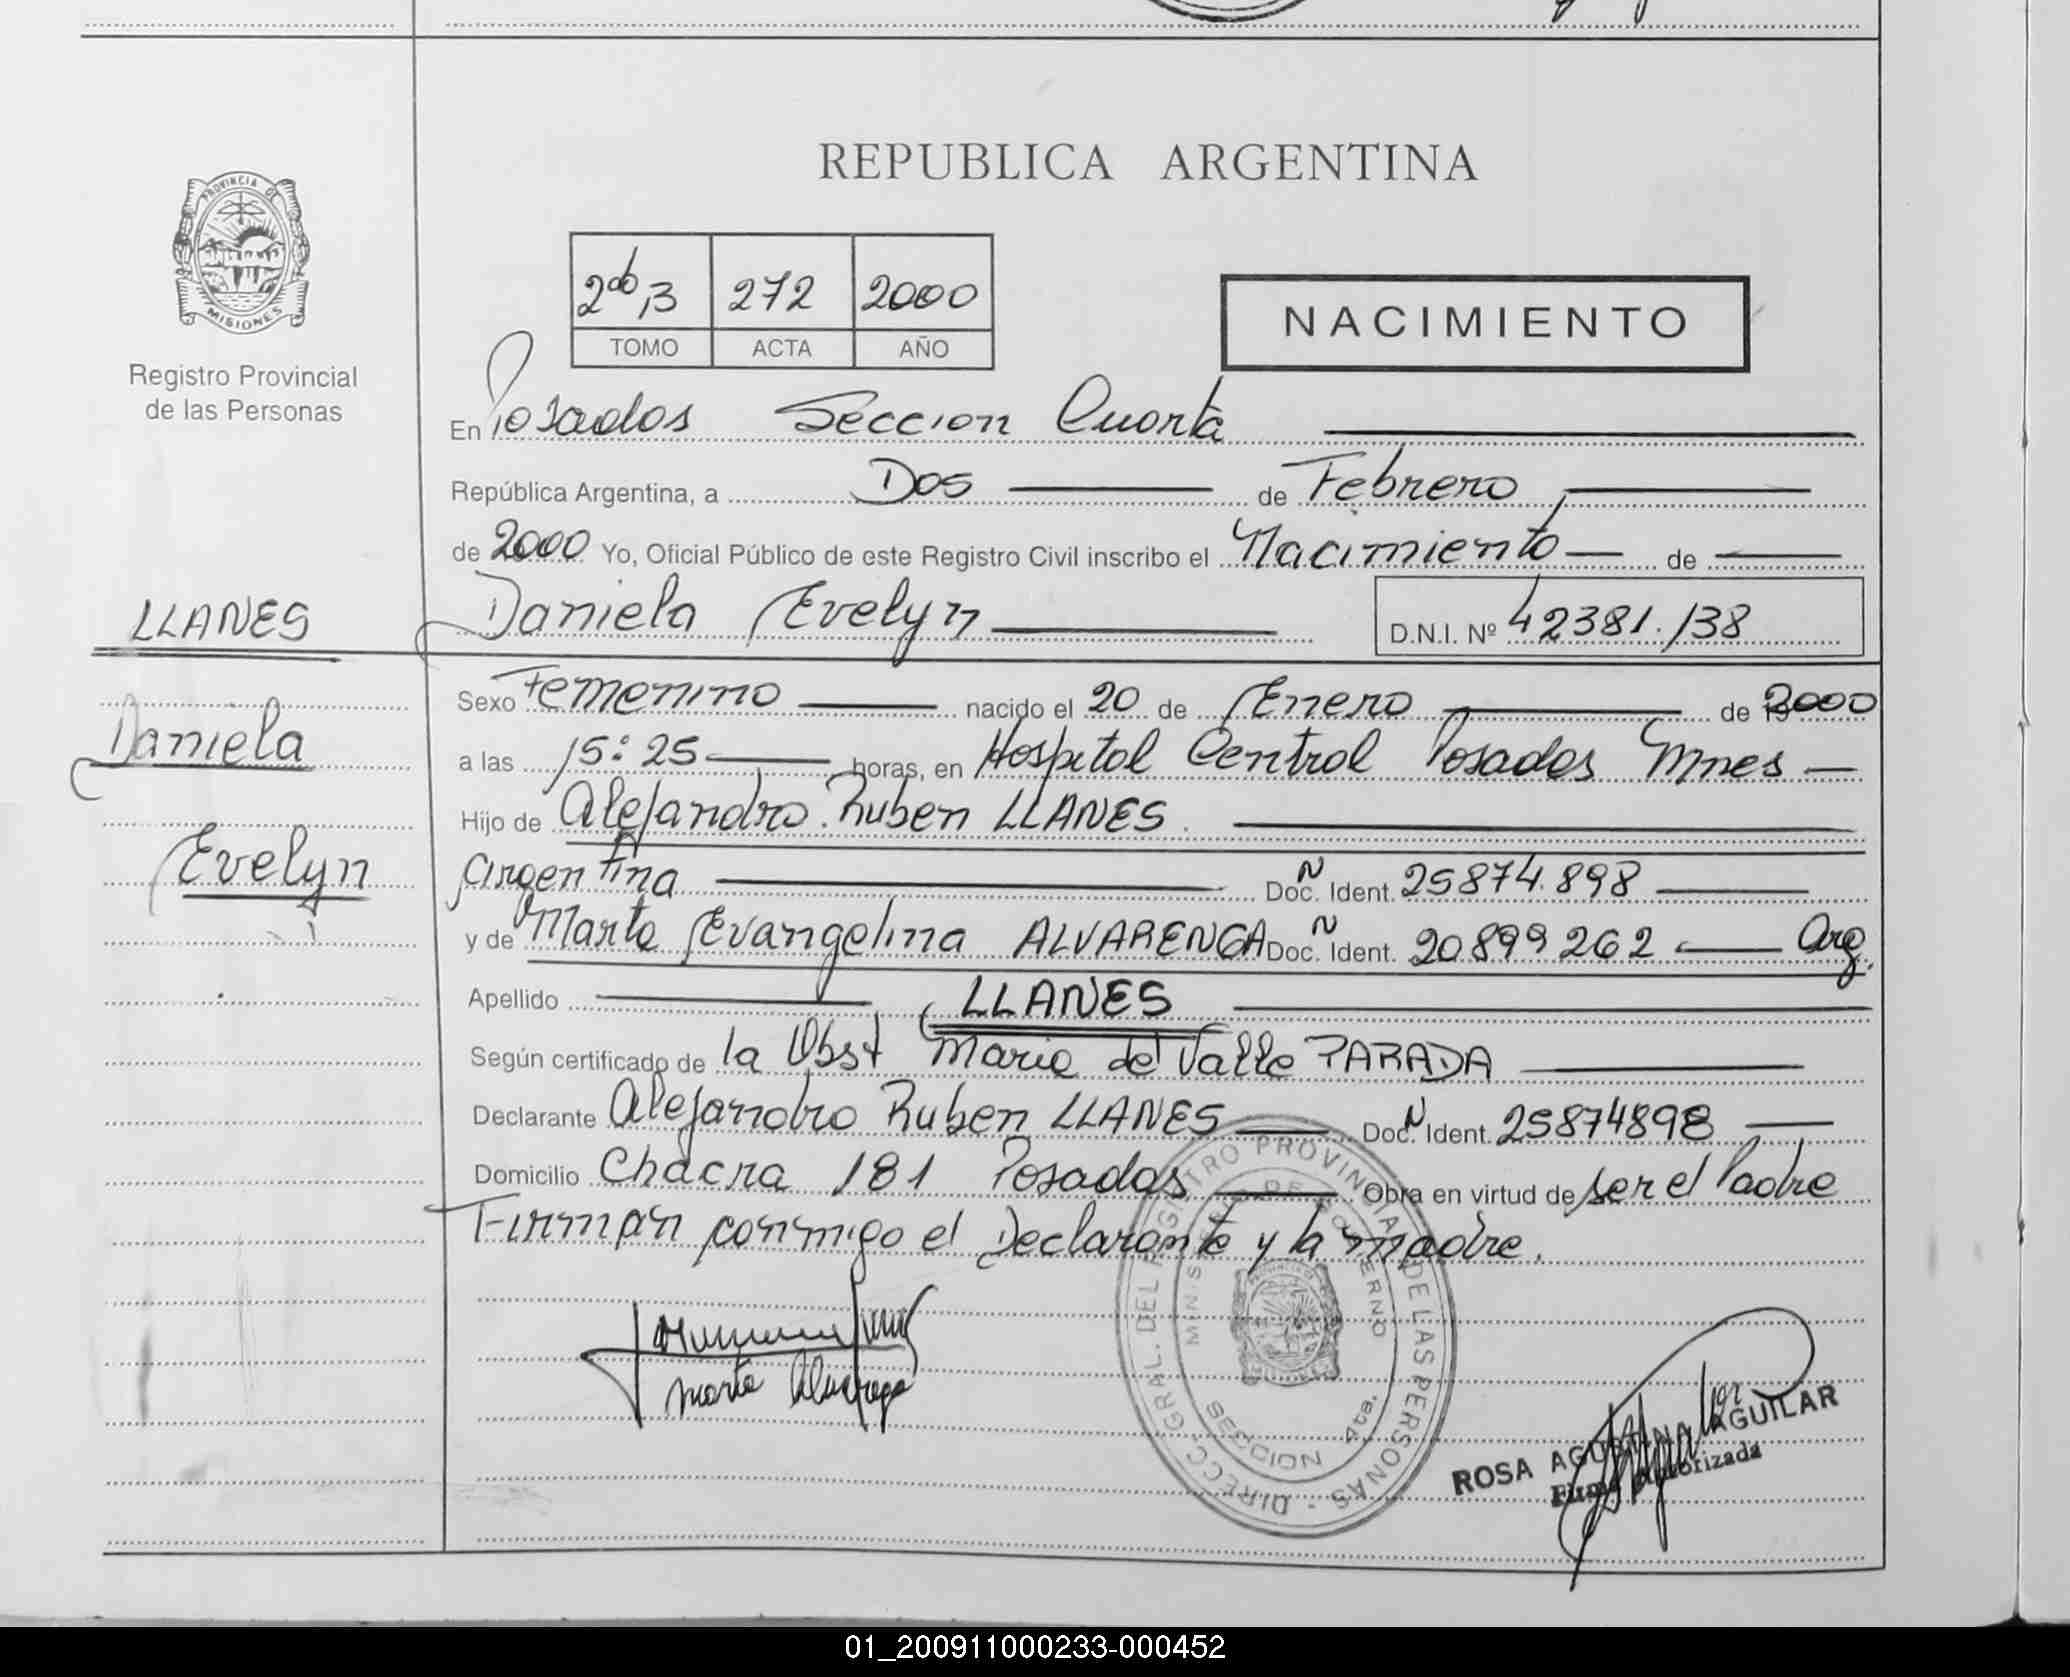 REPUBLICA ARGENTINA
PROVINCIA DE
MISIONES
Registro Provincial
de las Personas
2do B 272 2000
TOMO ACTA AÑO
NACIMIENTO
En Posadas Seccion Cuarta
República Argentina, a Dos de Febrero
de 2000 Yo, Oficial Público de este Registro Civil inscribo el Nacimiento de
LLANES
Daniela Evelyn D.N.I. Nº 42381.138
Daniela
Evelyn
Sexo Femenino nacido el 20 de Enero de 2000
a las 15:25 horas, en Hospital Central Posadas Mnes
Hijo de Alejandro Ruben LLANES
Argentina Doc. N Ident. 25874.898
y de Marta Evangelina ALVARENGA Doc. N Ident. 20899262 Arg.
Apellido LLANES
Según certificado de la Obst Maria del Valle PARADA
Declarante Alejandro Ruben LLANES Doc. N Ident. 25874898
Domicilio Chacra 181 Posadas Obra en virtud de ser el Padre
Firman conmigo el Declarante y la madre.
Marta Alvarenga
DIRECC. GRAL. DEL REGISTRO PROVINCIAL DE LAS PERSONAS
MINISTERIO DE GOBIERNO
SECCION 4ta.
ROSA AGUSTINA AGUILAR
Firma Autorizada
01_200911000233-000452